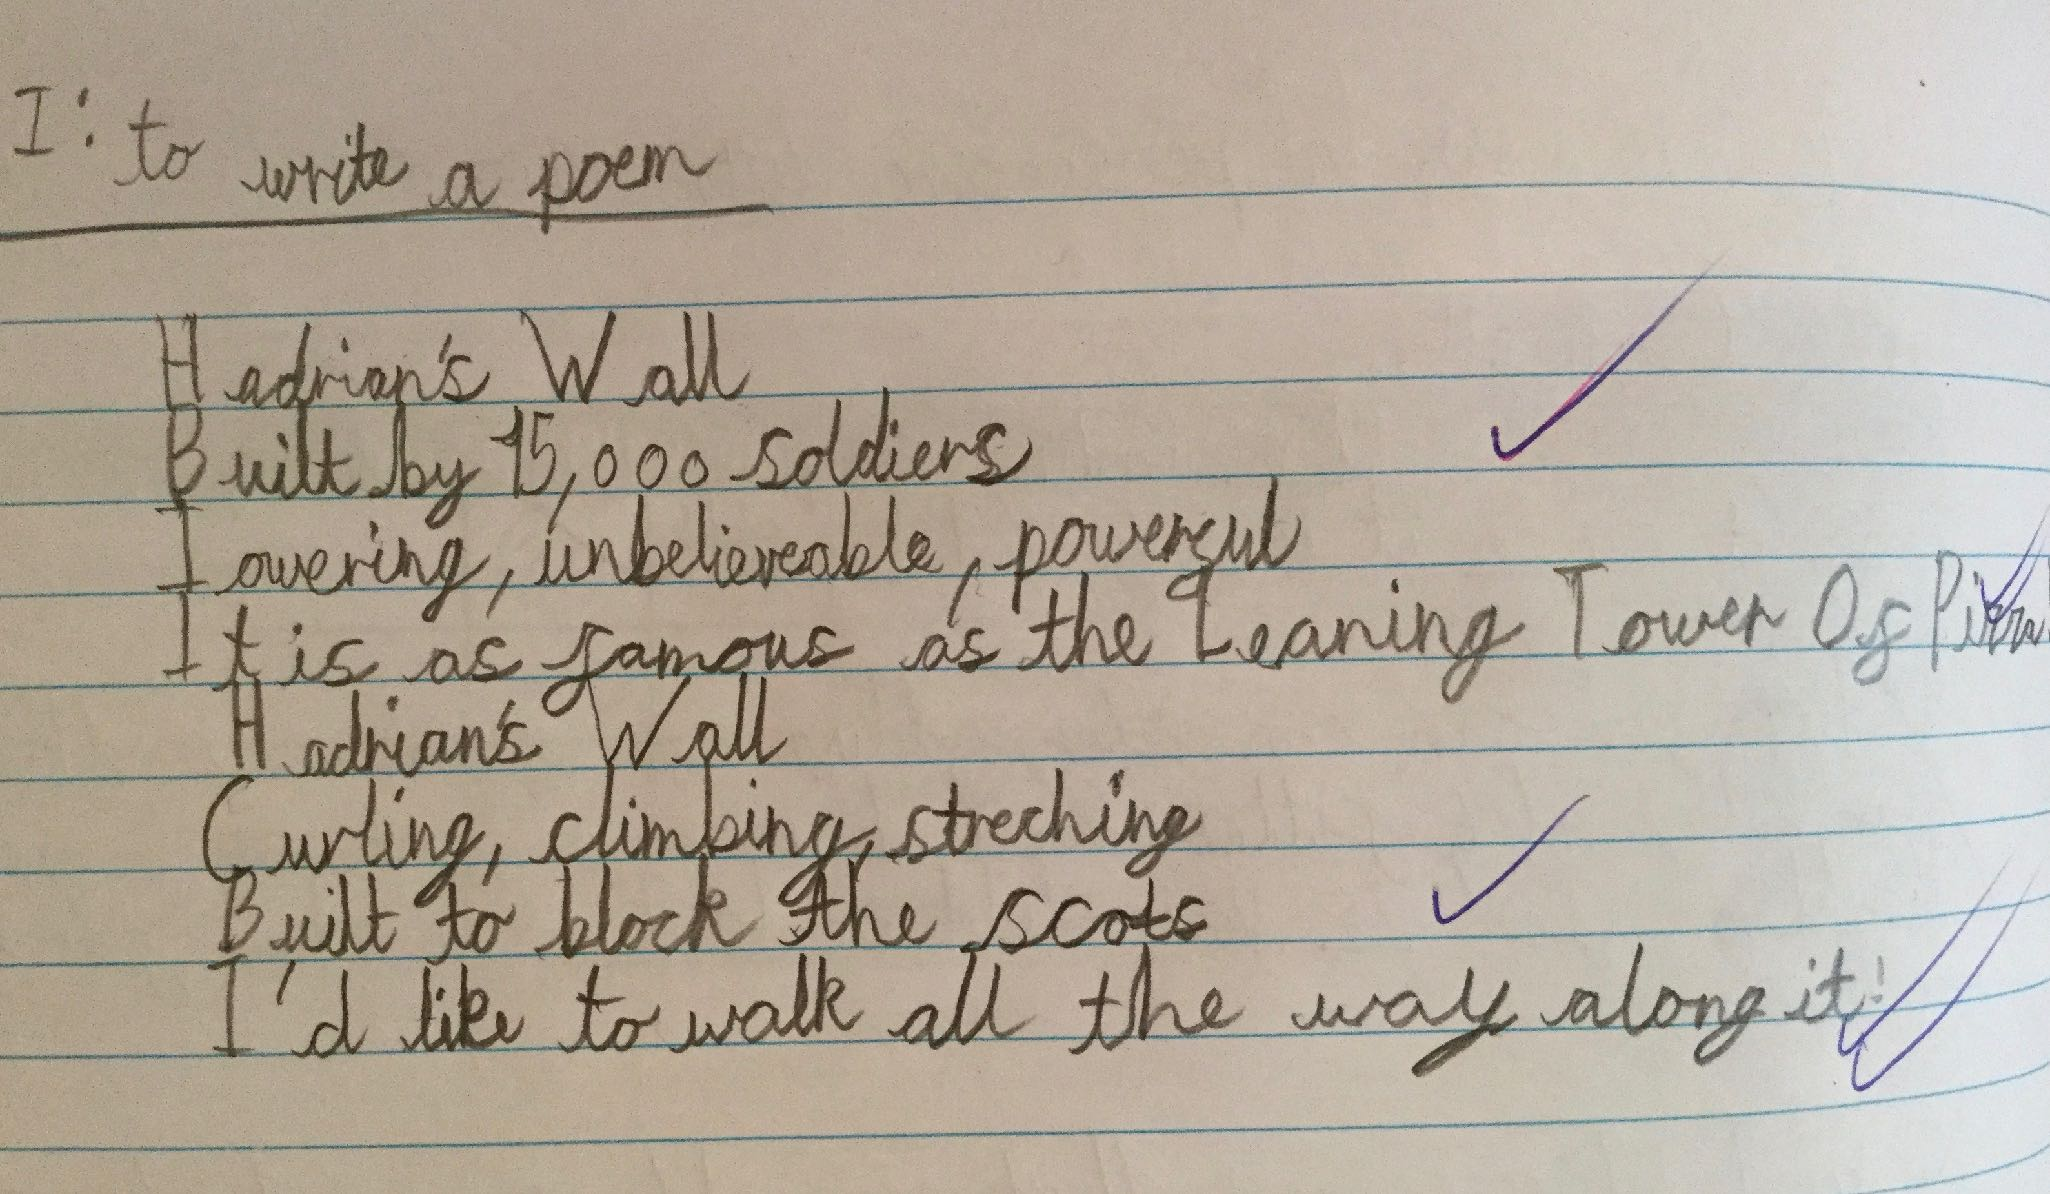 I: to write a poem
Hadrian's Wall
Built by 15,000 soldiers
Towering, unbelieveable, powerful
It is as famous as the Leaning Tower Of
Hadrian's Wall
Curling, climbing, streching
Built to block the scots
I'd like to walk all the way along it!